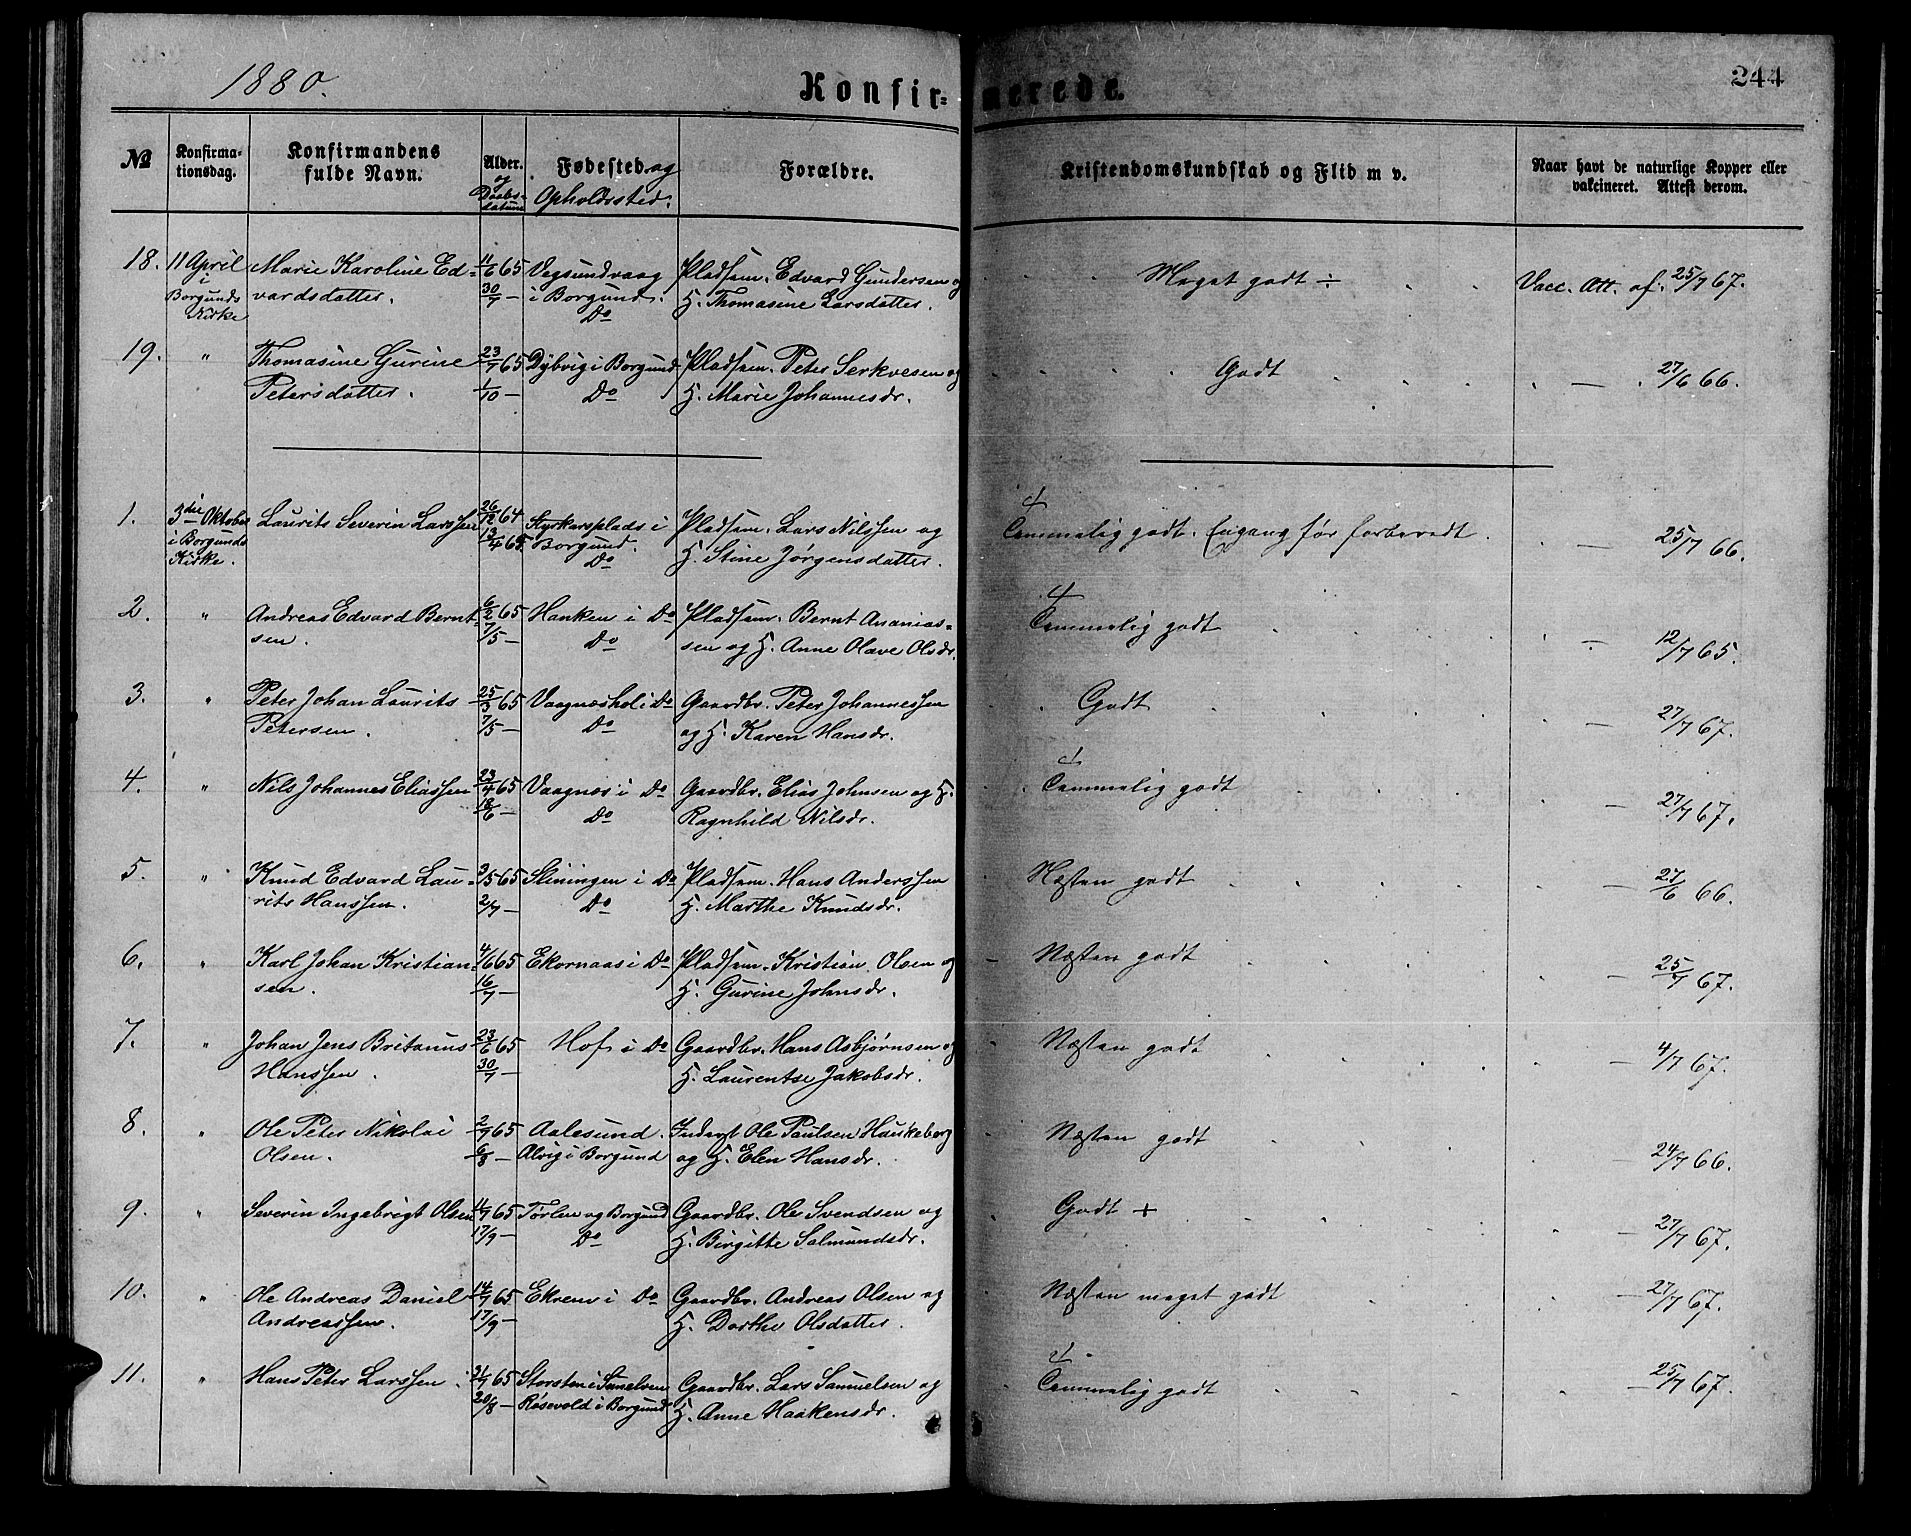 1880.
Konfirmerede.
244
№
Konfirmationsdag.
Konfirmandens fulde Navn.
Alder. og Daabsdatum
Fødested og Opholdssted.
Forældre.
Kristendomskundskab og Flid m v.
Naar havt de naturlige Kopper eller vakcineret. Attest derom.
18. 11 April Marie Karoline Ed- 11/6 65 Vegsundvaag Pladsm. Edvard Gundersen og Meget godt ÷ Vacc. Att. af. 25/7 67.
i Borgunds Kirke vardsdatter. 30/7 — i Borgund. Do H. Thomasine Larsdatter.
19. " Thomasine Gurine 23/7 65 Dybvig i Borgund Pladsm. Peter Serkvesen og Godt — 27/6 66.
Petersdatter. 1/10 — Do H. Marie Johannesdr.
1. 3die Oktober Laurits Severin Larssen 26/12 64 Styrkarsplads i Pladsm. Lars Nilssen og Temmelig godt. Engang før forberedt. — 25/7 66.
i Borgunds Kirke. 13/4 65 Borgund. Do H. Stine Jørgensdatter.
2. " Andreas Edvard Bernt- 6/2 65 Hanken i Do Pladsm. Bernt Ananias- Temmelig godt — 12/7 65.
sen. 7/5 — Do sen og H. Anne Olave Olsdr.
3. " Peter Johan Laurits 25/3 65 Vaagneshol i Do Gaardbr. Peter Johannessen Godt — 27/7 67.
Petersen. 7/5 — Do og H. Karen Hansdr.
4. " Nils Johannes Eliassen 23/4 65 Vaagnæs i Do Gaardbr. Elias Johnsen og H. Temmelig godt — 27/7 67.
18/6 — Do Ragnhild Nilsdr.
5. " Knud Edvard Lau- 3/5 65 Sliningen i Do Pladsm. Hans Anderssen Næsten godt — 27/6 66.
rits Hanssen. 2/7 — Do H. Marthe Knudsdr.
6. " Karl Johan Kristian- 4/6 65 Ekornaas i Do Pladsm. Kristian Olsen og Næsten godt — 25/7 67.
sen. 16/7 — H. Gurine Johnsdr.
7. " Johan Jens Britanus 23/6 65 Hof i Do Gaardbr. Hans Asbjørnsen og Næsten godt — 4/7 67.
Hanssen. 30/7 — H. Laurentse Jakobsdr.
8. " Ole Peter Nikolai 2/7 65 Aalesund. Inderst Ole Paulsen Haukeberg Næsten godt — 24/7 66.
Olsen. 6/8 — Alvig i Borgund og H. Elen Hansdr.
9. " Severin Ingebrigt Olsen 11/7 65 Tørlen og Borgund Gaardbr. Ole Svendsen og Godt + — 27/7 67.
17/9 — Do H. Birgitte Salmundsdr.
10. " Ole Andreas Daniel 14/7 65 Ekrem i Do Gaardbr. Andreas Olsen og Næsten meget godt — 27/7 67.
Andreassen. 17/9 — H. Dorthe Olsdatter.
11. " Hans Peter Larssen 31/7 65 Storsten i Sunelven Gaardbr. Lars Samuelsen og Temmelig godt — 25/7 67.
20/8 — Røsevold i Borgund H. Anne Haakensdr.